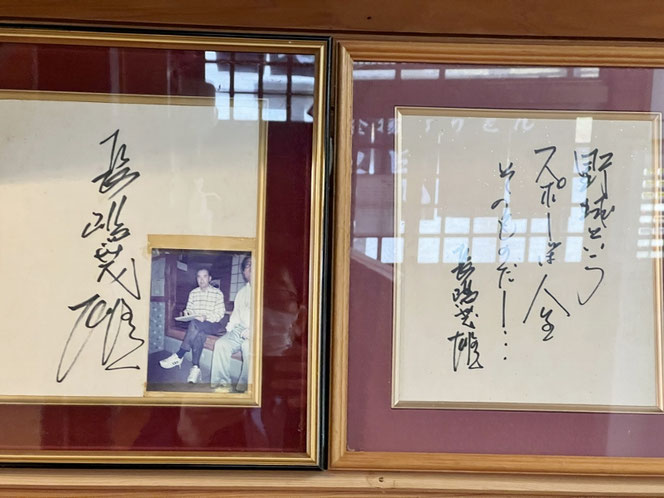 長嶋茂雄
野球という
スポーツは人生
そのものだ！…
長嶋茂雄